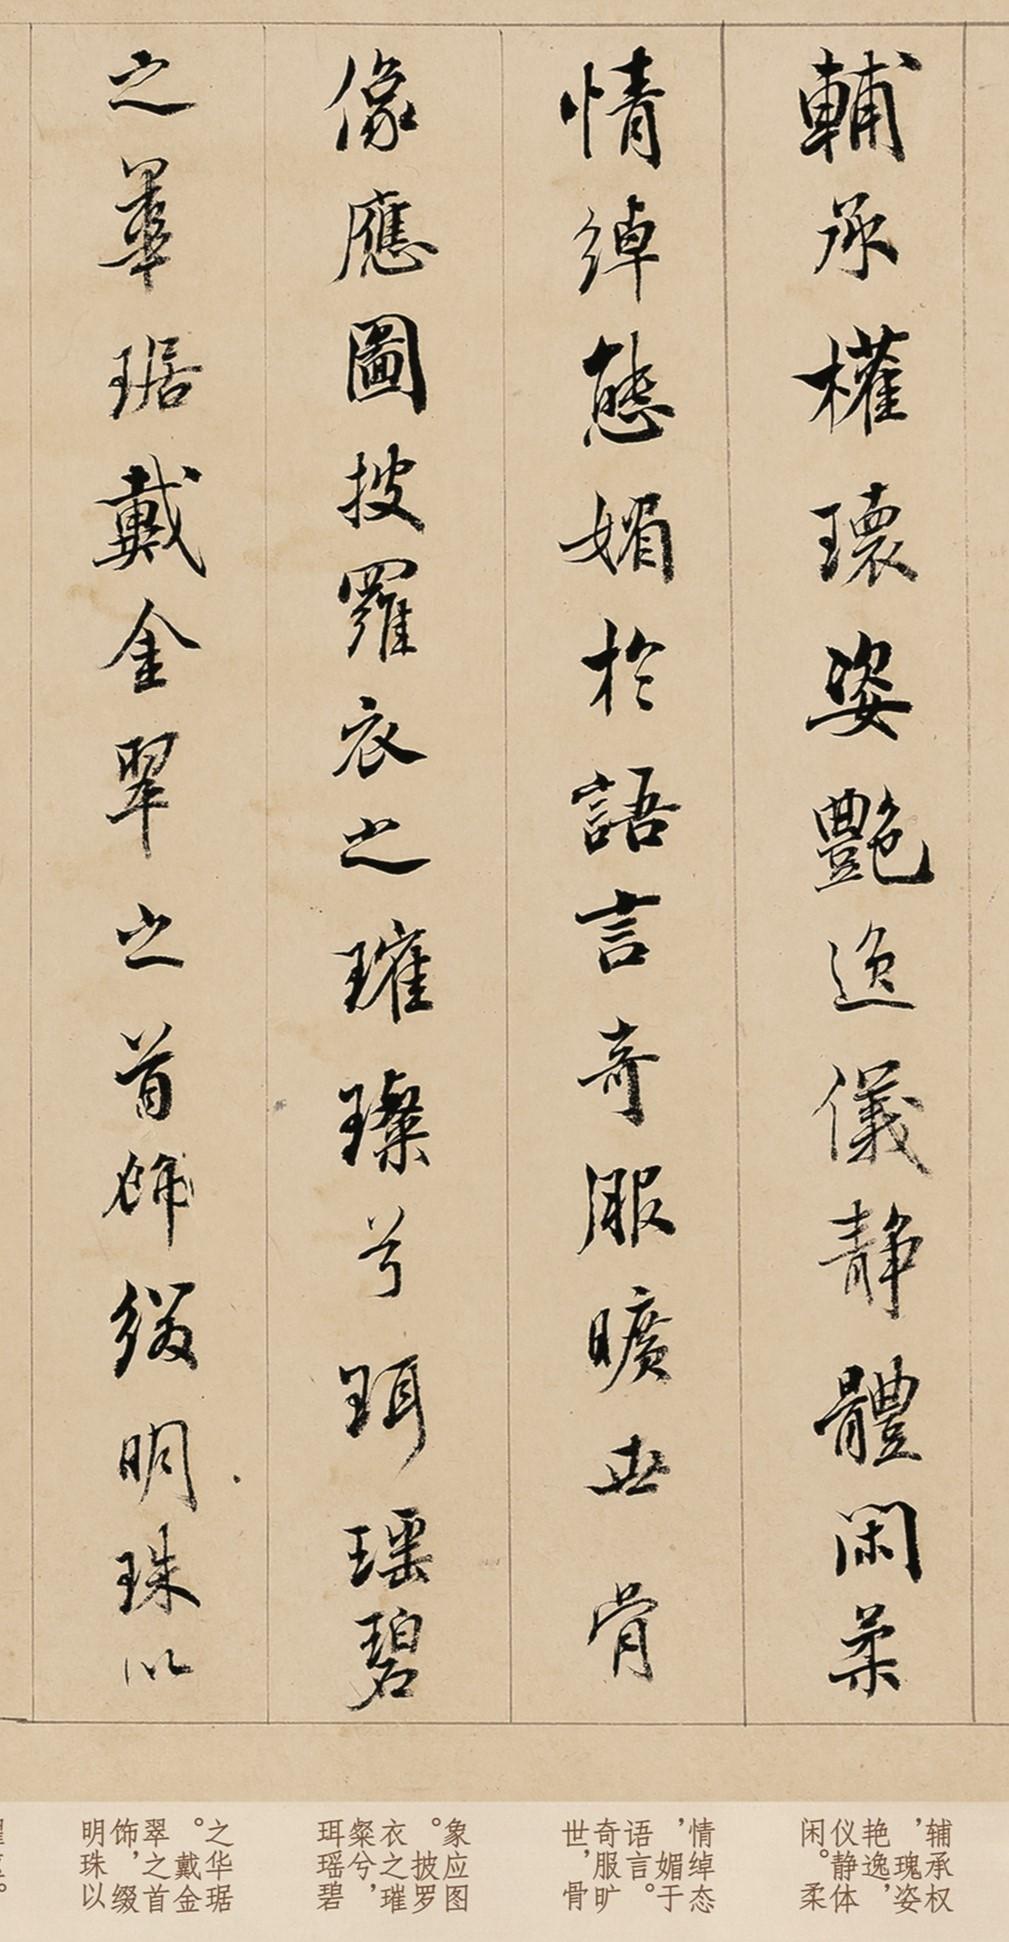 輔承權瓌姿艷逸儀静體閑柔
情綽態媚於語言奇服曠世骨
像應圖披羅衣之璀璨兮珥瑶碧
之華琚戴金翠之首飾綴明珠以
辅承权
，瑰姿
艳逸，
仪静体
闲。柔
情绰态
，媚于
语言。
奇服旷
世，骨
象应图
。披罗
衣之璀
粲兮，
珥瑶碧
之华琚
。戴金
翠之首
饰，缀
明珠以